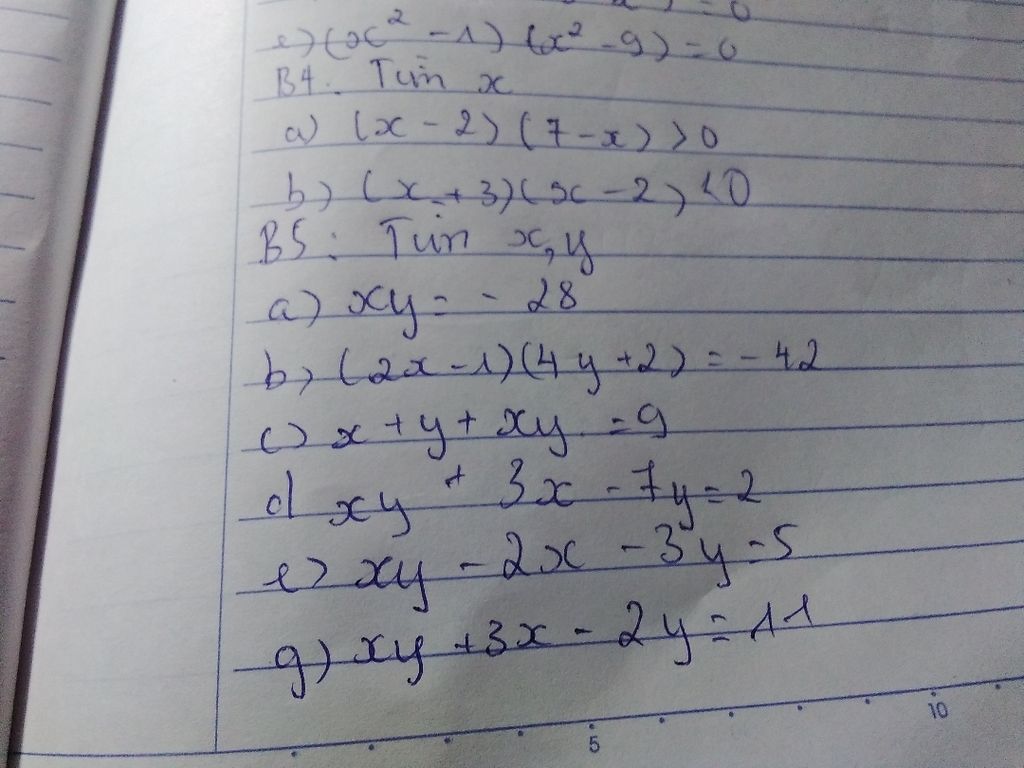 = 0
e) (x² - 1) (x² - 9) = 0
B4. Tìm x
a) (x - 2) (7 - x) > 0
b) (x + 3) (x - 2) < 0
B5: Tìm x, y
a) xy = - 28
b) (2x - 1) (4y + 2) = - 42
c) x + y + xy = 9
d xy + 3x - 7y = 2
e) xy - 2x - 3y = 5
g) xy + 3x - 2y = 11
5 10